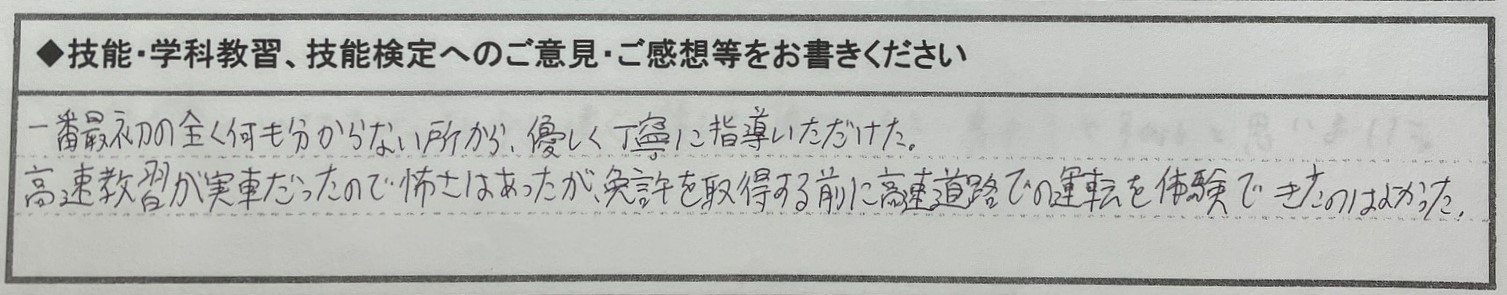 ◆技能・学科教習、技能検定へのご意見・ご感想等をお書きください
一番最初の全く何も分からない所から、優しく丁寧に指導いただけた。
高速教習が実車だったので怖さはあったが、免許を取得する前に高速道路での運転を体験できたのはよかった。